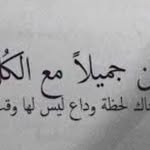 جميلاً مع الكُل
لحظة وداع ليس لها وقت